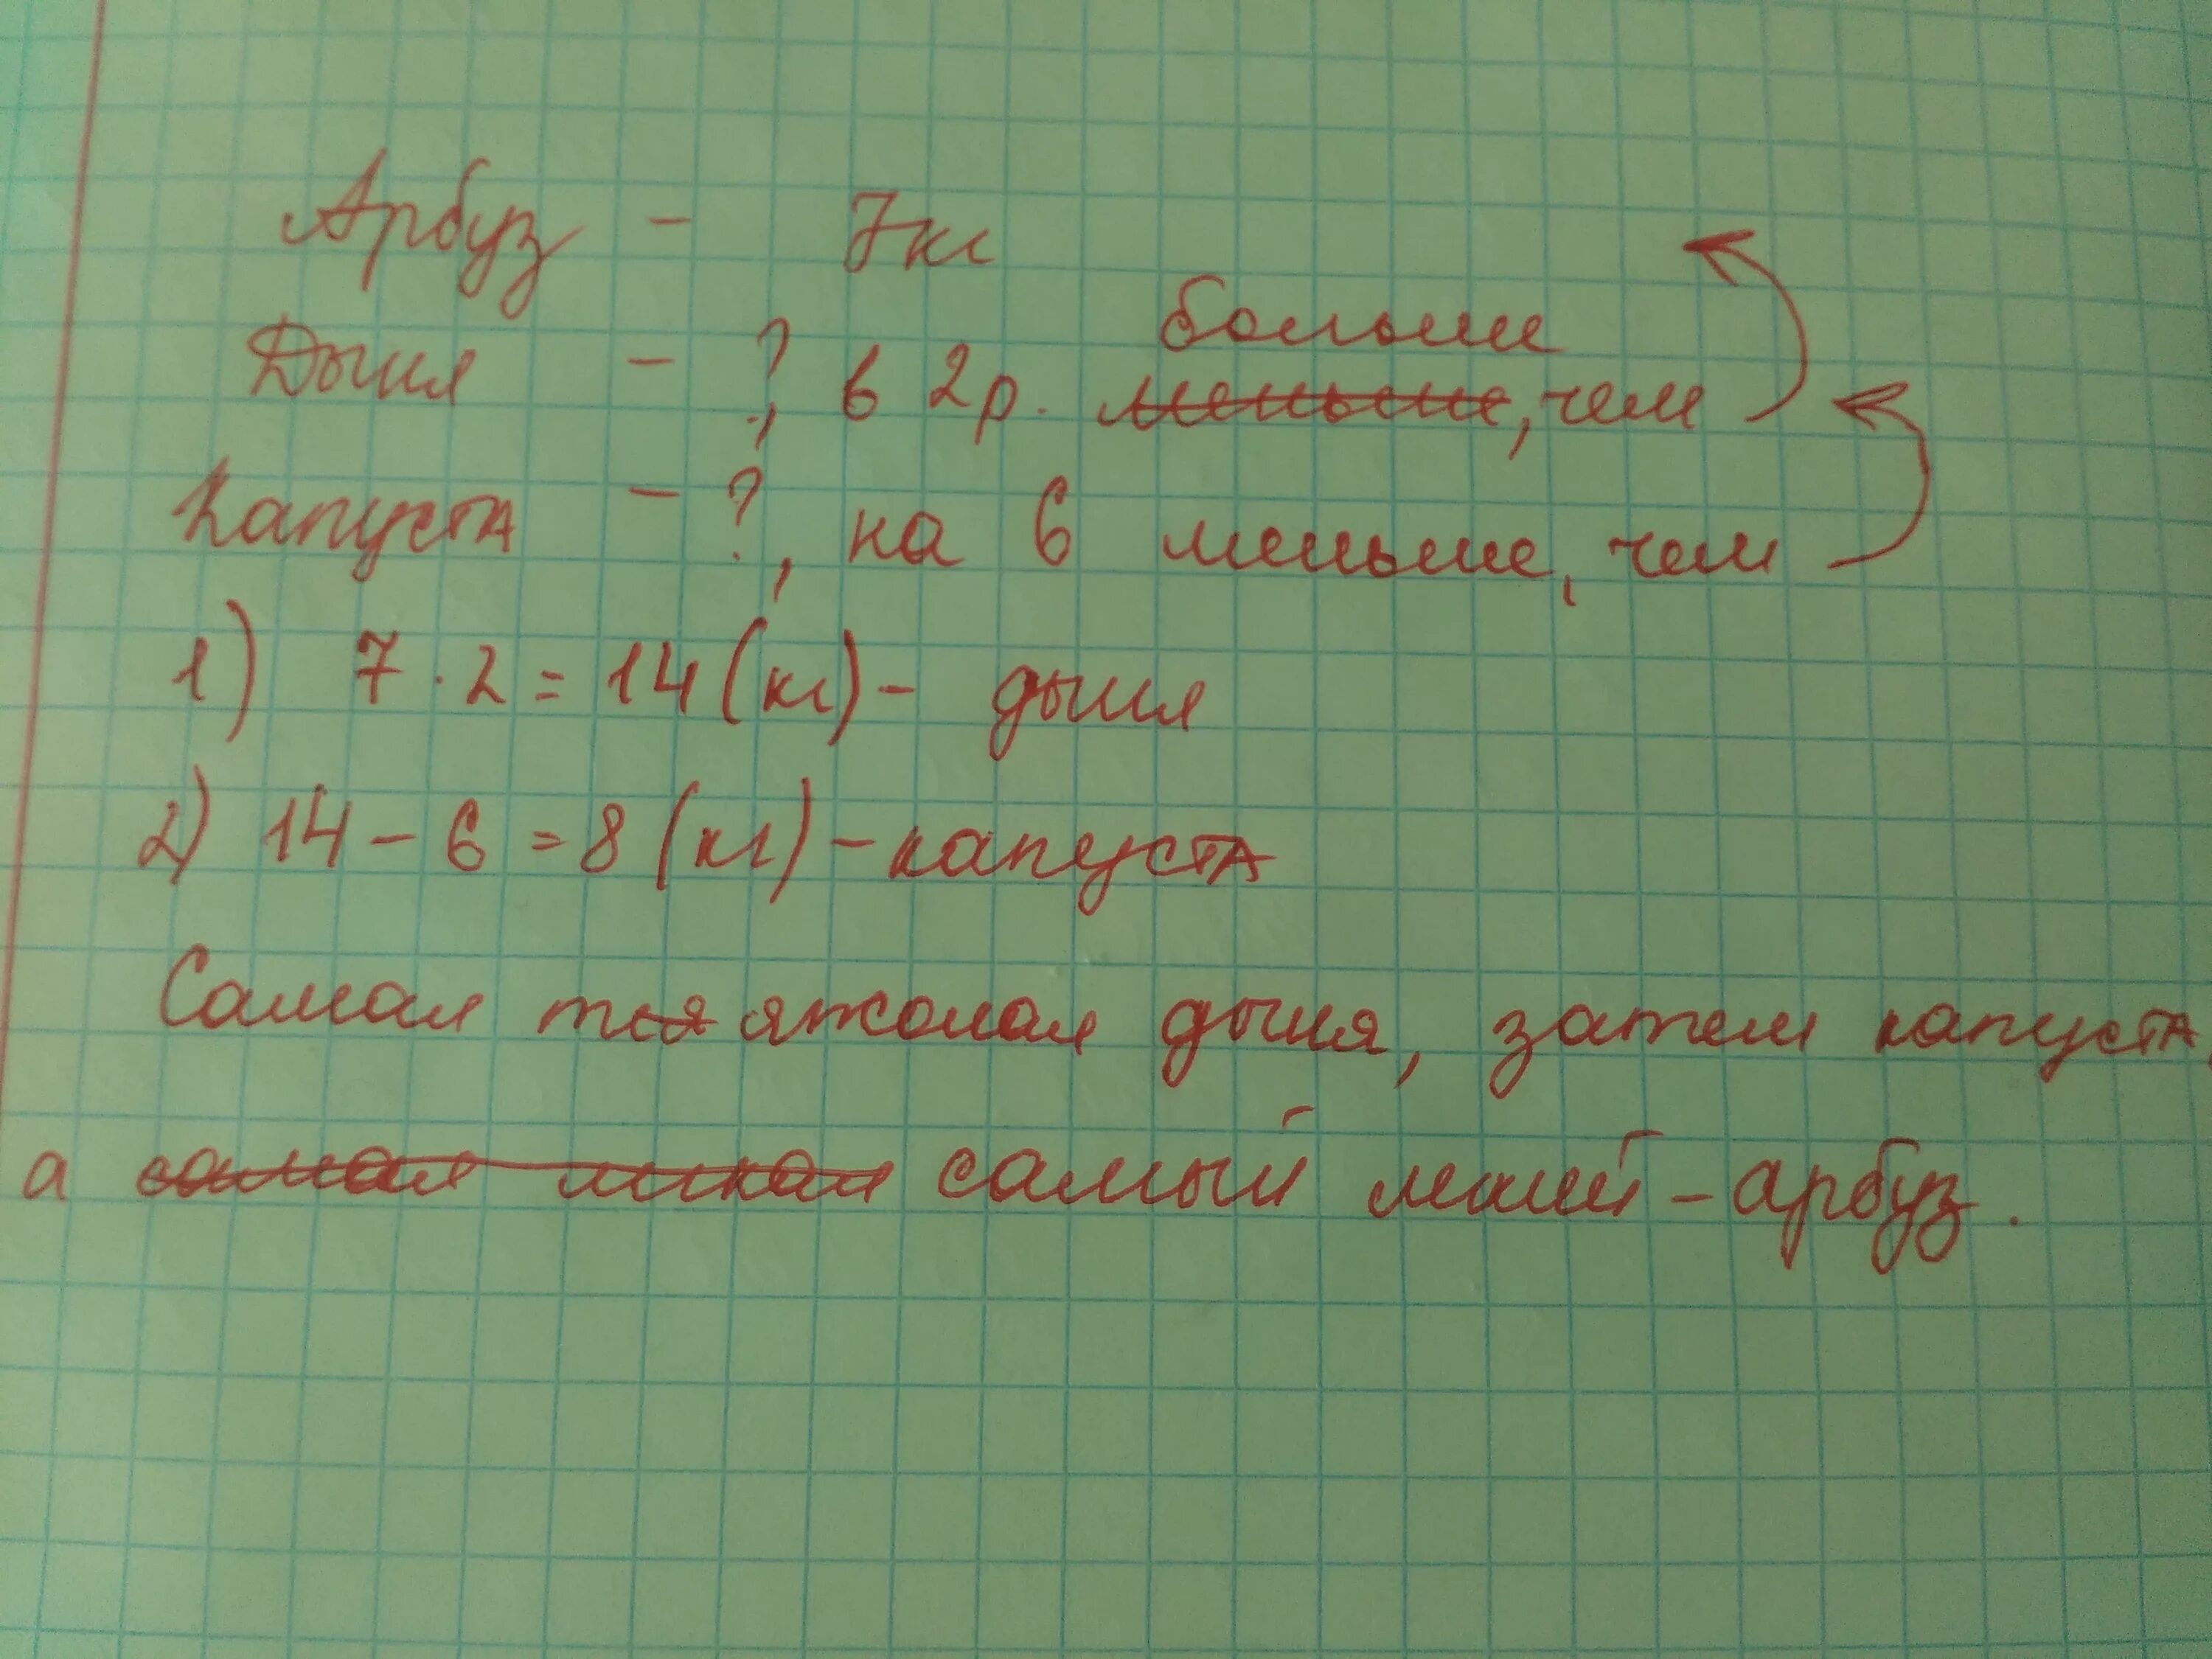 Арбуз - 7кг
больше
Дыня - ?, в 2р. меньше, чем
Капуста - ?, на 6 меньше, чем
1) 7 · 2 = 14 (кг) - дыня
2) 14 - 6 = 8 (кг) - капуста
Самая тяжолая дыня, затем капуста,
а самая самый легкий - арбуз.